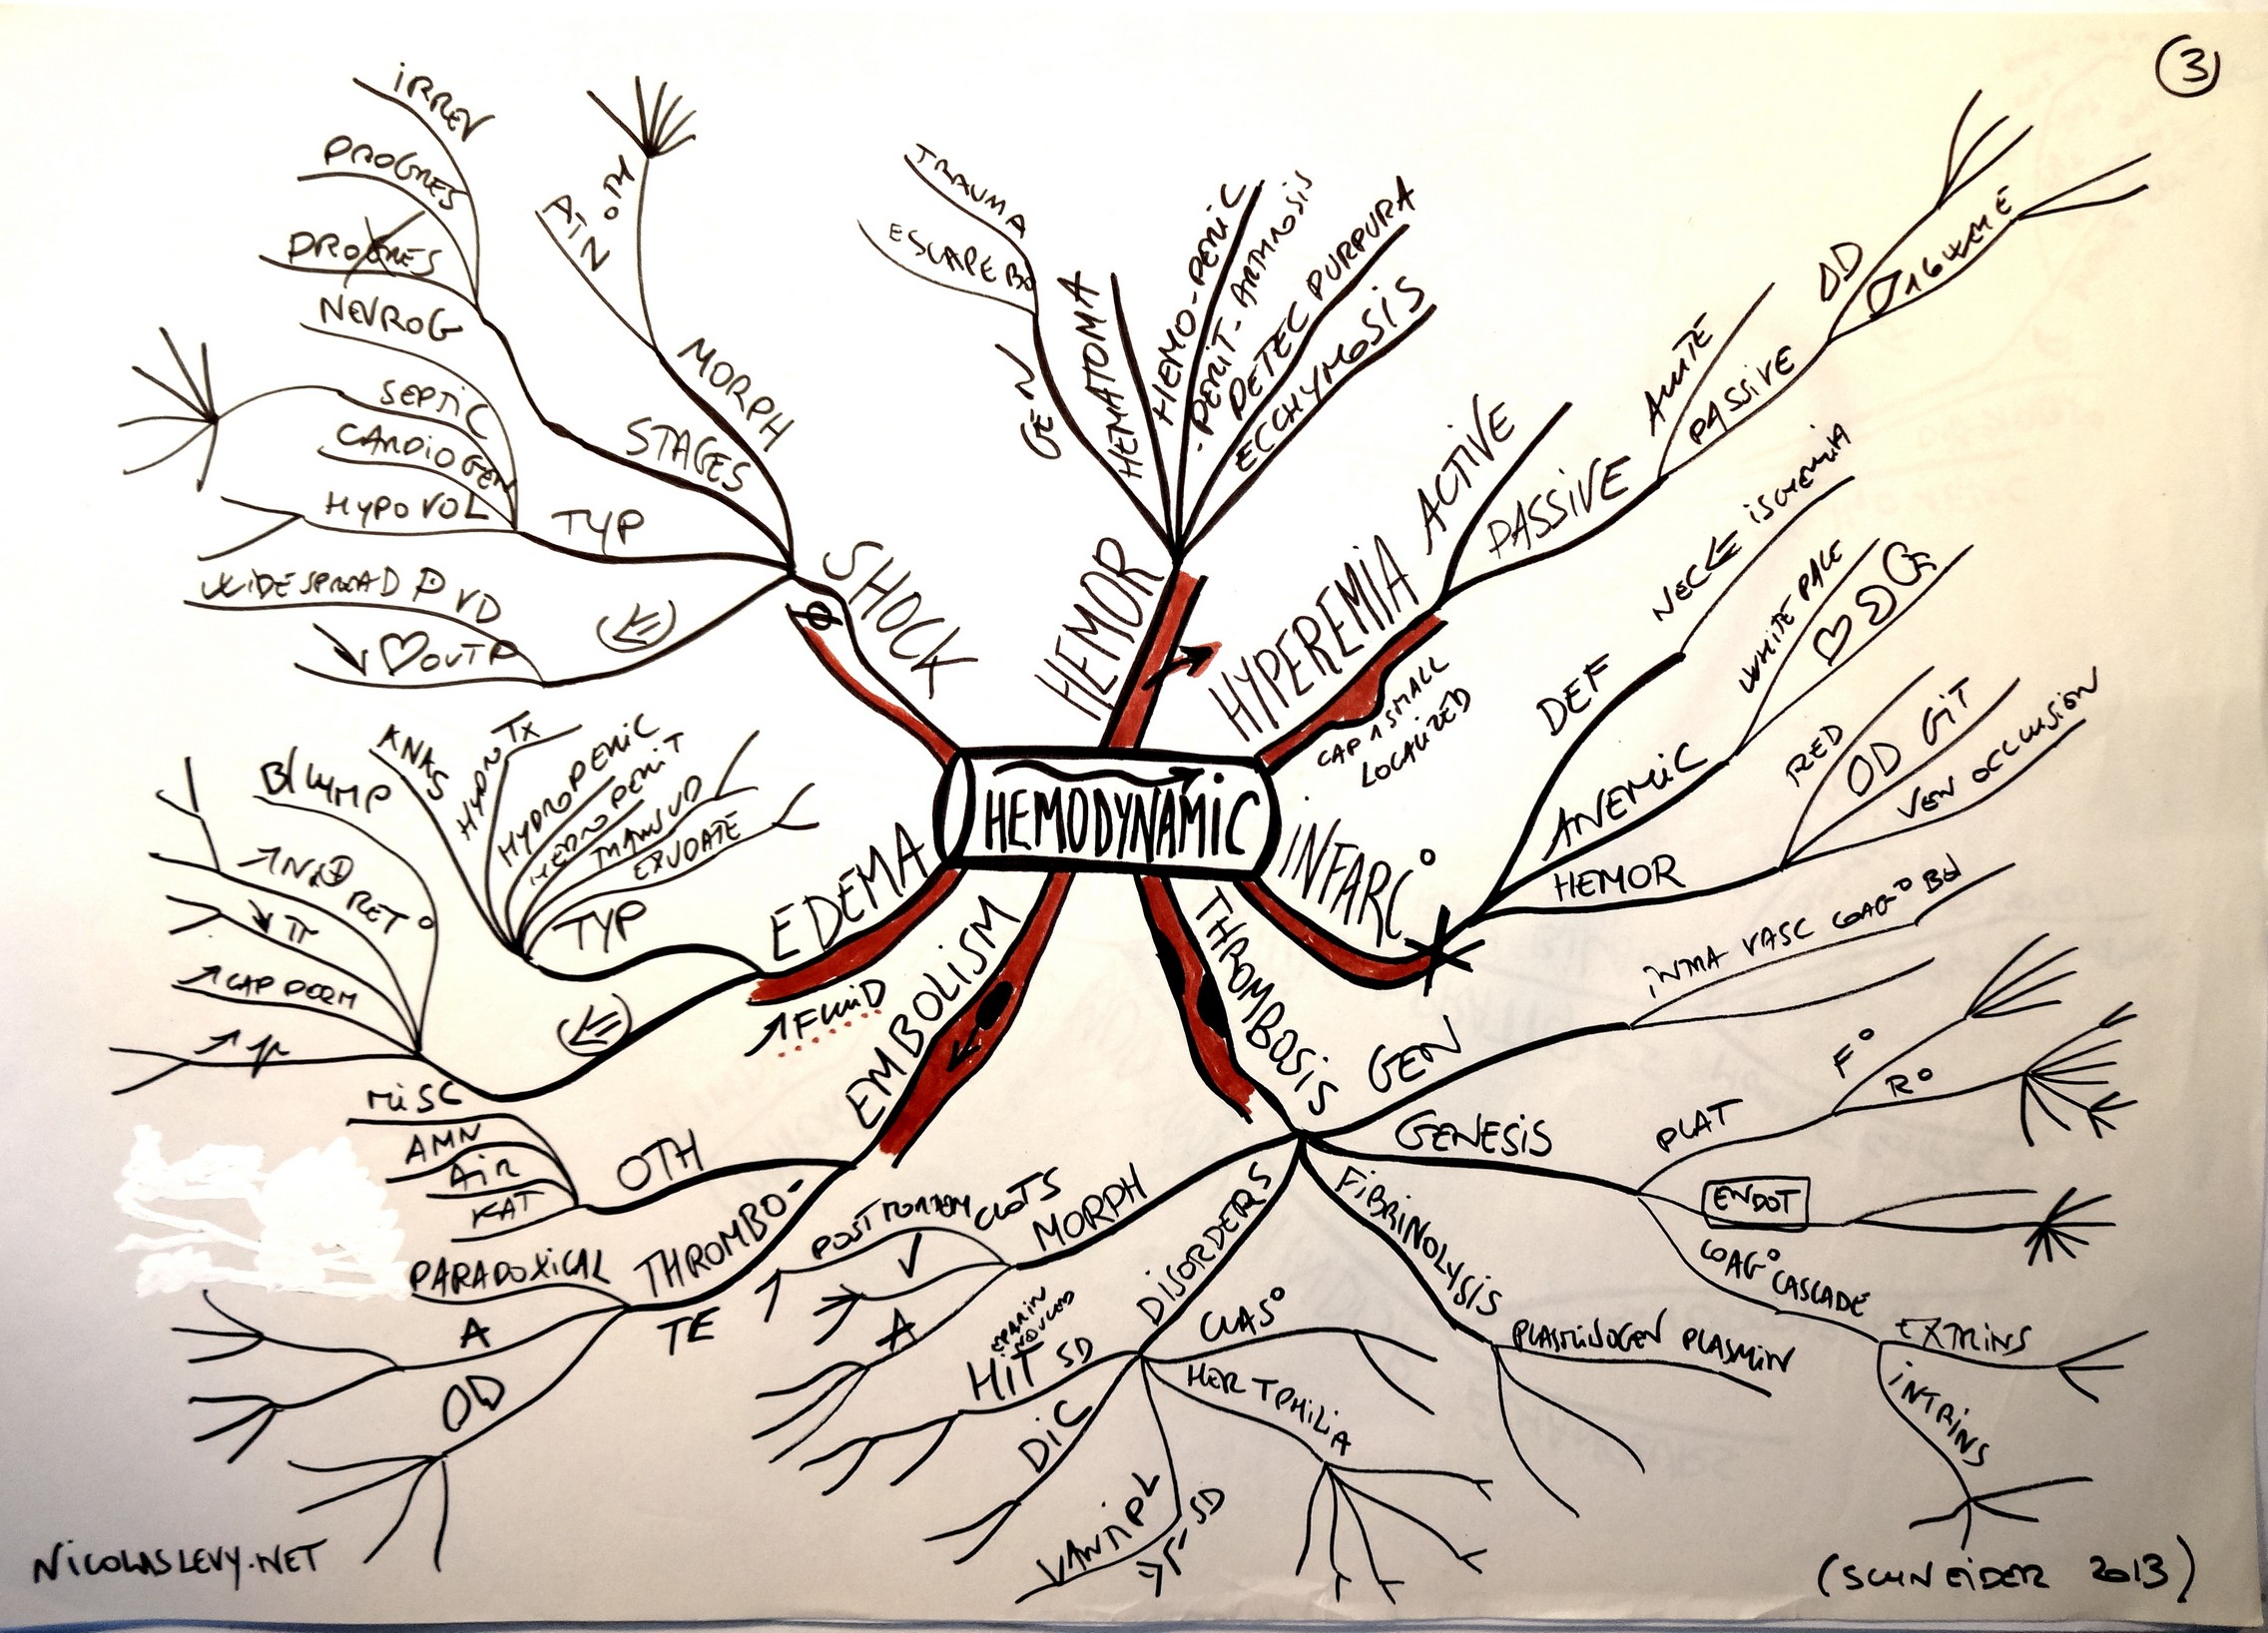 3
HEMODYNAMIC
HEMOR
GEN
TRAUMA
ESCAPE
HEMATOMA
HEMO-PERIC
PERIT-ARTHROSIS
PETEC PURPURA
ECCHYMOSIS
HYPEREMIA
CAP SMALL
LOCALIZED
ACTIVE
PASSIVE
PASSIVE
INFARC°
DEF
ISCHEMIA
ANEMIC
WHITE PALE
HEMOR
RED
OD GIT
VEN OCCLUSION
THROMBOSIS
GEN
VASC COAG°
GENESIS
PLAT
F°
R°
ENDOT
COAG° CASCADE
EXTRINS
INTRINS
FIBRINOLYSIS
PLASMINOGEN PLASMIN
DISORDERS
CLAS°
HER TPHILIA
SD
DIC
HIT SD
MORPH
POSTMORTEM CLOTS
V
A
EMBOLISM
OTH
MISC
AMN
AIR
KAT
THROMBO-
TE
PARADOXICAL
A
OD
EDEMA
↗FLUID
TYP
ANAS
HYDROTX
HYDROPERIC
HYDROPERIT
TRANSUD
EXUDATE
RET°
↘π
↗CAP PERM
SHOCK
MORPH
STAGES
IRREV
PROGRES
PROGRES
TYP
NEVROG
SEPTIC
CARDIOGEN
HYPOVOL
WIDESPREAD P VD
↘♡OUTP
NICOLASLEVY.NET
(SCHNEIDER 2013)